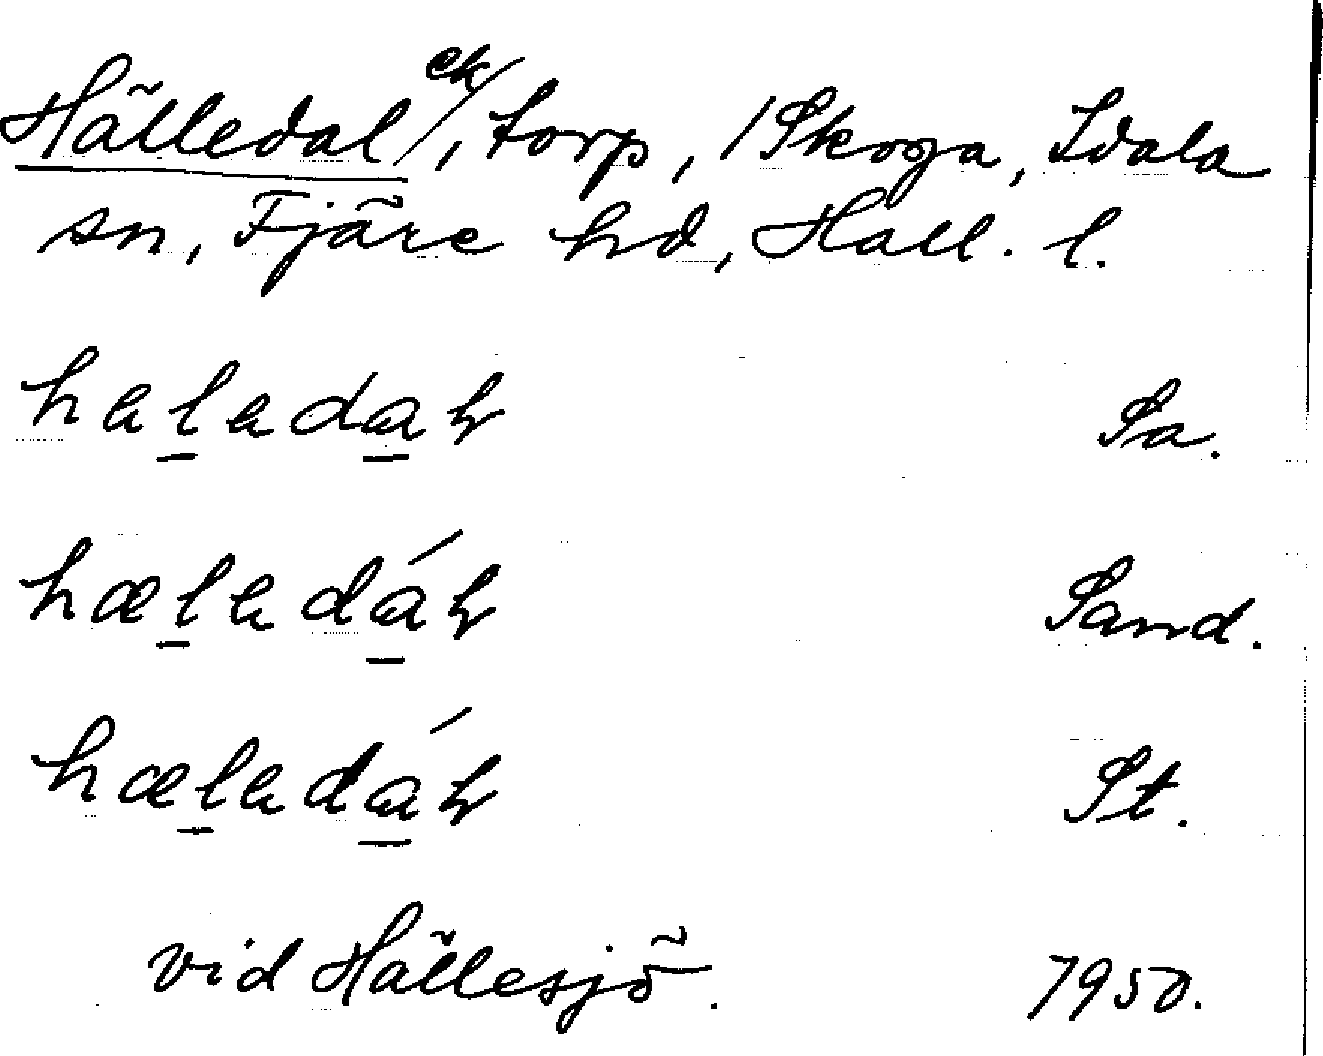 Hälledal /ek/, torp, 1 Skoga, Idala
sn, Fjäre hd, Hall. l.
haladaɫ Sa.
hæladáɫ Sand.
hæladáɫ St.
vid Hällesjö. 1950.